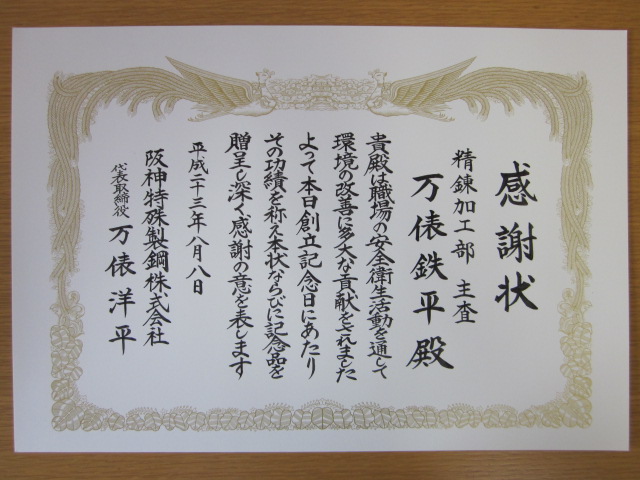 感謝状
精錬加工部 主査
万俵鉄平殿
貴殿は職場の安全衛生活動を通して
環境の改善に多大な貢献をされました
よって本日創立記念日にあたり
その功績を称え本状ならびに記念品を
贈呈し深く感謝の意を表します
平成二十三年八月八日
阪神特殊製鋼株式会社
代表取締役 万俵洋平